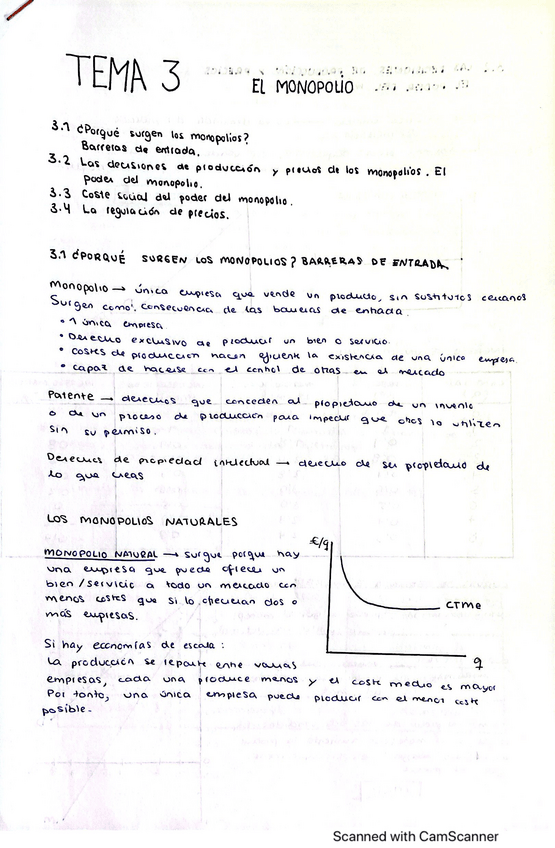 TEMA 3
EL MONOPOLIO
3.1 ¿Porqué surgen los monopolios?
Barreras de entrada.
3.2 Las decisiones de producción y precios de los monopolios. El
poder del monopolio.
3.3 Coste social del poder del monopolio.
3.4 La regulación de precios.
3.1 ¿PORQUÉ SURGEN LOS MONOPOLIOS? BARRERAS DE ENTRADA
Monopolio → única empresa que vende un producto, sin sustitutos cercanos
Surgen como consecuencia de las barreras de entrada.
• 1 única empresa
• Derecho exclusivo de producir un bien o servicio
• costes de producción hacen eficiente la existencia de una única empresa
• capaz de hacerse con el control de otras en el mercado
Patente → derechos que conceden al propietario de un invento
o de un proceso de producción para impedir que otros lo utilizen
sin su permiso.
Derechos de propiedad intelectual → derecho de ser propietario de
lo que creas
LOS MONOPOLIOS NATURALES
€/q
MONOPOLIO NATURAL → surgue porque hay
una empresa que puede ofrecer un
bien/servicio a todo un mercado con
menos costes que si lo ofrecieran dos o
más empresas.
CTMe
q
Si hay economías de escala:
La producción se reparte entre varias
empresas, cada una produce menos y el coste medio es mayor
Por tanto, una única empresa puede producir con el menor coste
posible.
Scanned with CamScanner